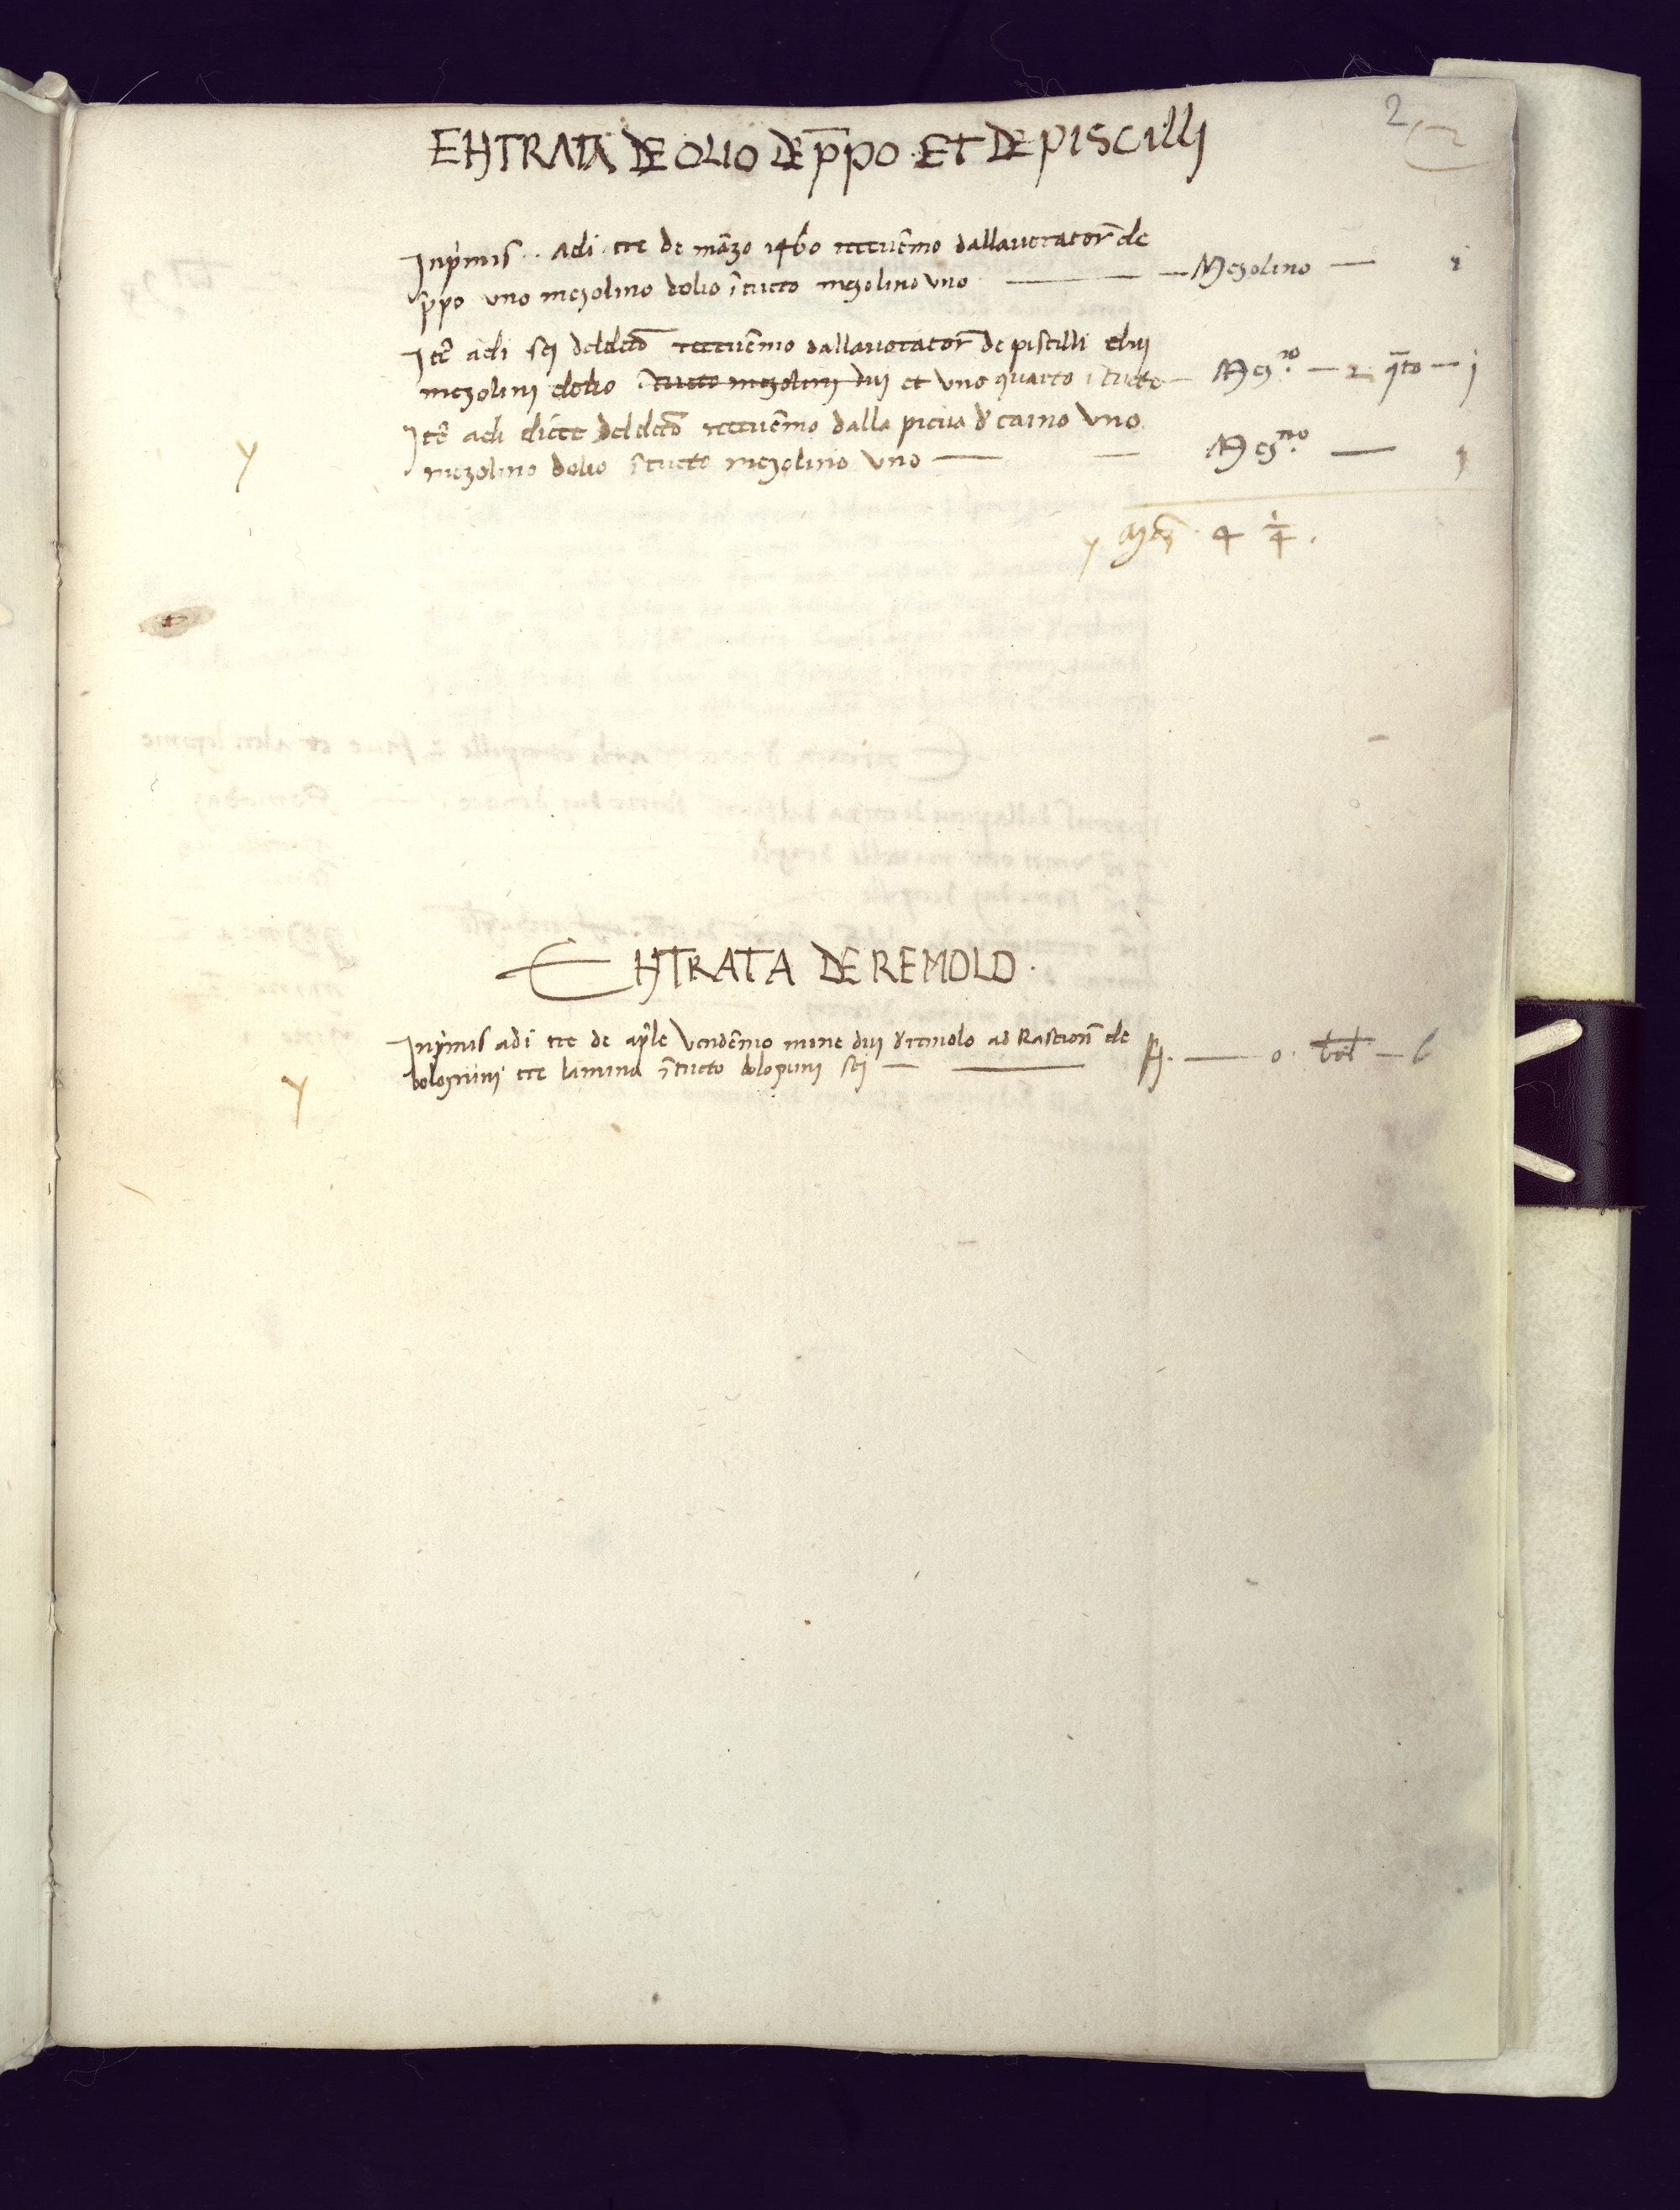 2
2
EHTRATA DE OLIO DE p̄po ET DE PISCIllj
Inprimis . adi tre de mãzo 1460 recevẽmo dallavorator̃ de
p̄po uno mezolino dolio ĩtucto mezolino uno — Mezolino — i
Itẽ adi sei deldcõ recevẽmo dallavorator̃ de piscilli dui
mezolinj dolio ĩtucto mezolinj dui et uno quarto itucto — Mez.no — 2 q̄to — j
Itẽ adi diece deldcõ recevẽmo dalla piciva d caino uno
mezolino dolio ĩtucto mezolino uno — Mez.no — j
4 1/4 .
EHTRATA DE REMOLO .
Inprimis adi tre de ap̃le vendẽmo mine dui d remolo ad Rascion̄ de
bolognini tre lamina ĩtucto bologninj sei — o . bol — 6